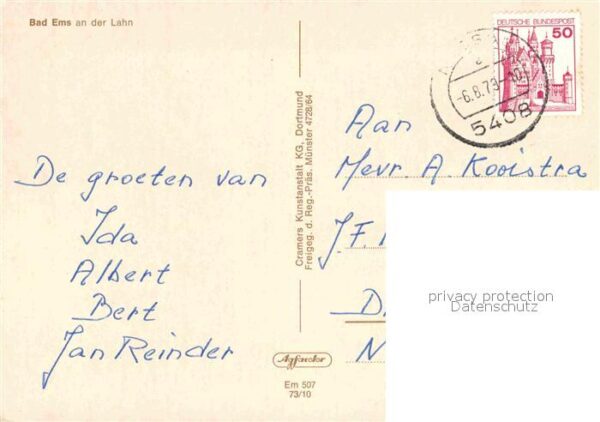 Bad Ems an der Lahn
DEUTSCHE BUNDESPOST
50
-6.8.79-10
5408
De groeten van
Ida
Albert
Bert
Jan Reinder
Cramers Kunstanstalt KG, Dortmund
Freigeg. d. Reg.-Präs. Münster 4728/64
Agfacolor
Em 507
73/10
Aan
Mevr. A. Kooistra
J.F.
D
N
privacy protection
Datenschutz